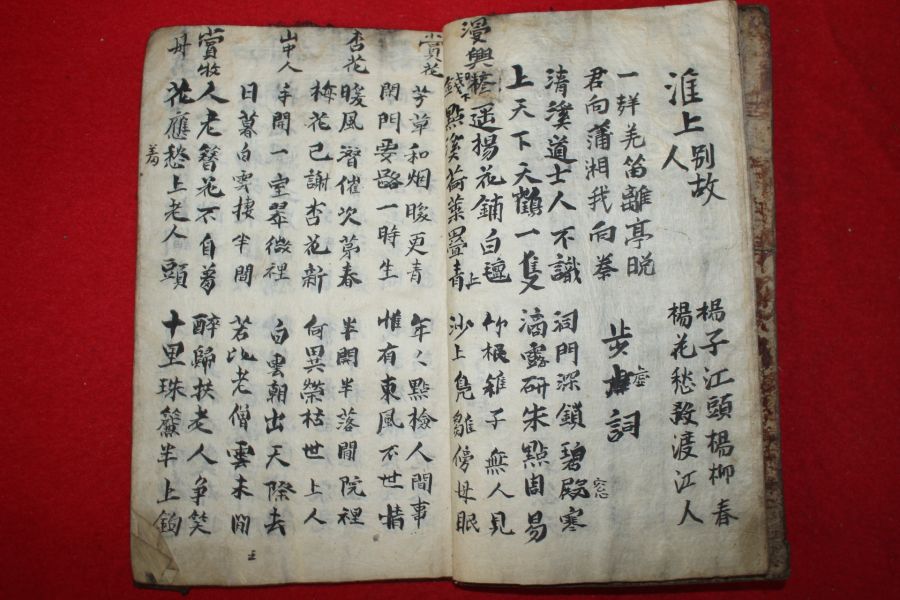 淮上別故人
楊子江頭楊柳春
楊花愁殺渡江人
一群羌笛離亭晩
君向蒲湘我向秦
步虛詞
清溪道士人不識
上天下天鶴一隻
洞門深鎖碧窓寒
滴露研朱點周易
漫興
糝逕楊花鋪白氈
點溪荷葉疊青錢
竹根稚子無人見
沙上鳧雛傍母眠
賞花
芳草和烟暖更青
閑門要路一時生
年々點檢人間事
惟有東風不世情
杏花
暖風潛催次第春
梅花已謝杏花新
半開半落閒院裡
何異榮枯世上人
山中人
半開一室翠微裡
日暮白雲棲半間
白雲朝出天際去
若比老僧雲未閒
賞牧丹
人老簪花不自羞
花應羞上老人頭
醉歸扶老人爭笑
十里珠簾半上鉤